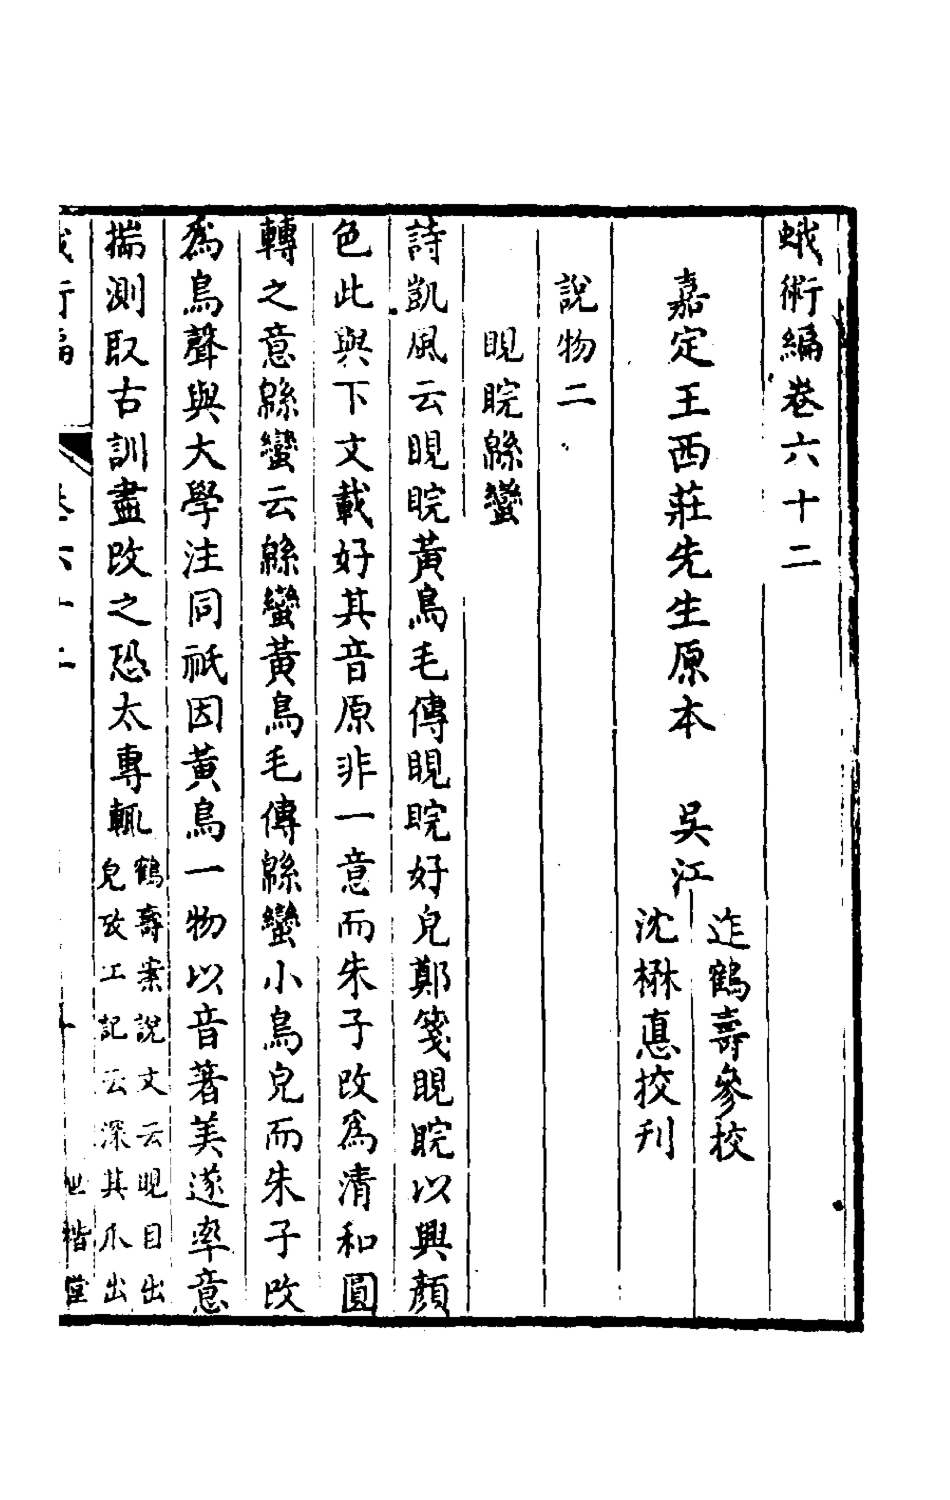 蛾術編卷六十二
嘉定王西莊先生原本　吳江
迮鶴壽參校
沈楙悳挍刊
說物二
睍睆緜蠻
詩凱風云睍睆黃鳥毛傳睍睆好皃鄭箋睍睆以興顏
色此與下文載好其音原非一意而朱子改爲清和圓
轉之意緜蠻云緜蠻黃鳥毛傳緜蠻小鳥皃而朱子改
爲鳥聲與大學注同祇因黃鳥一物以音著美遂率意
揣測取古訓盡改之恐太專輒
鶴壽案說文云睍目出
皃攷工記云深其爪出
蛾術編　卷六十二　一　世楷堂